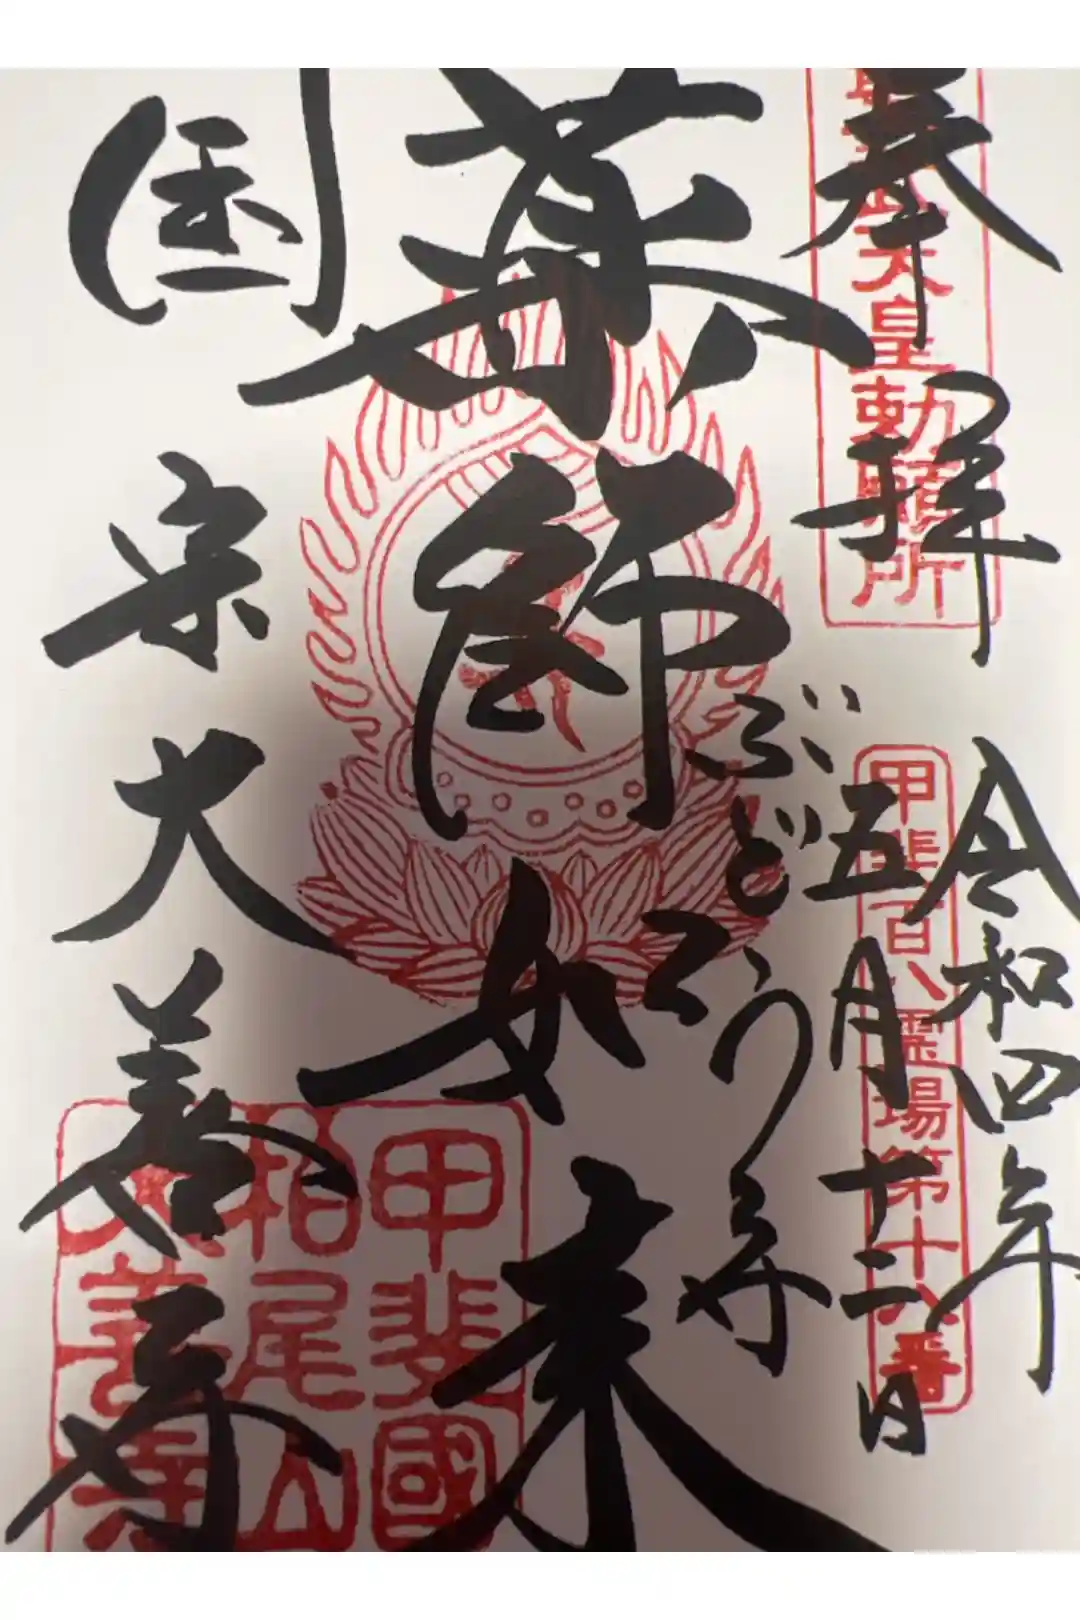 奉拝
令和四年
五月十二日
天皇勅願所
甲斐百八霊場第十八番
ぶどう寺
薬師如来
国宝大善寺
甲斐國
柏尾山
大善寺